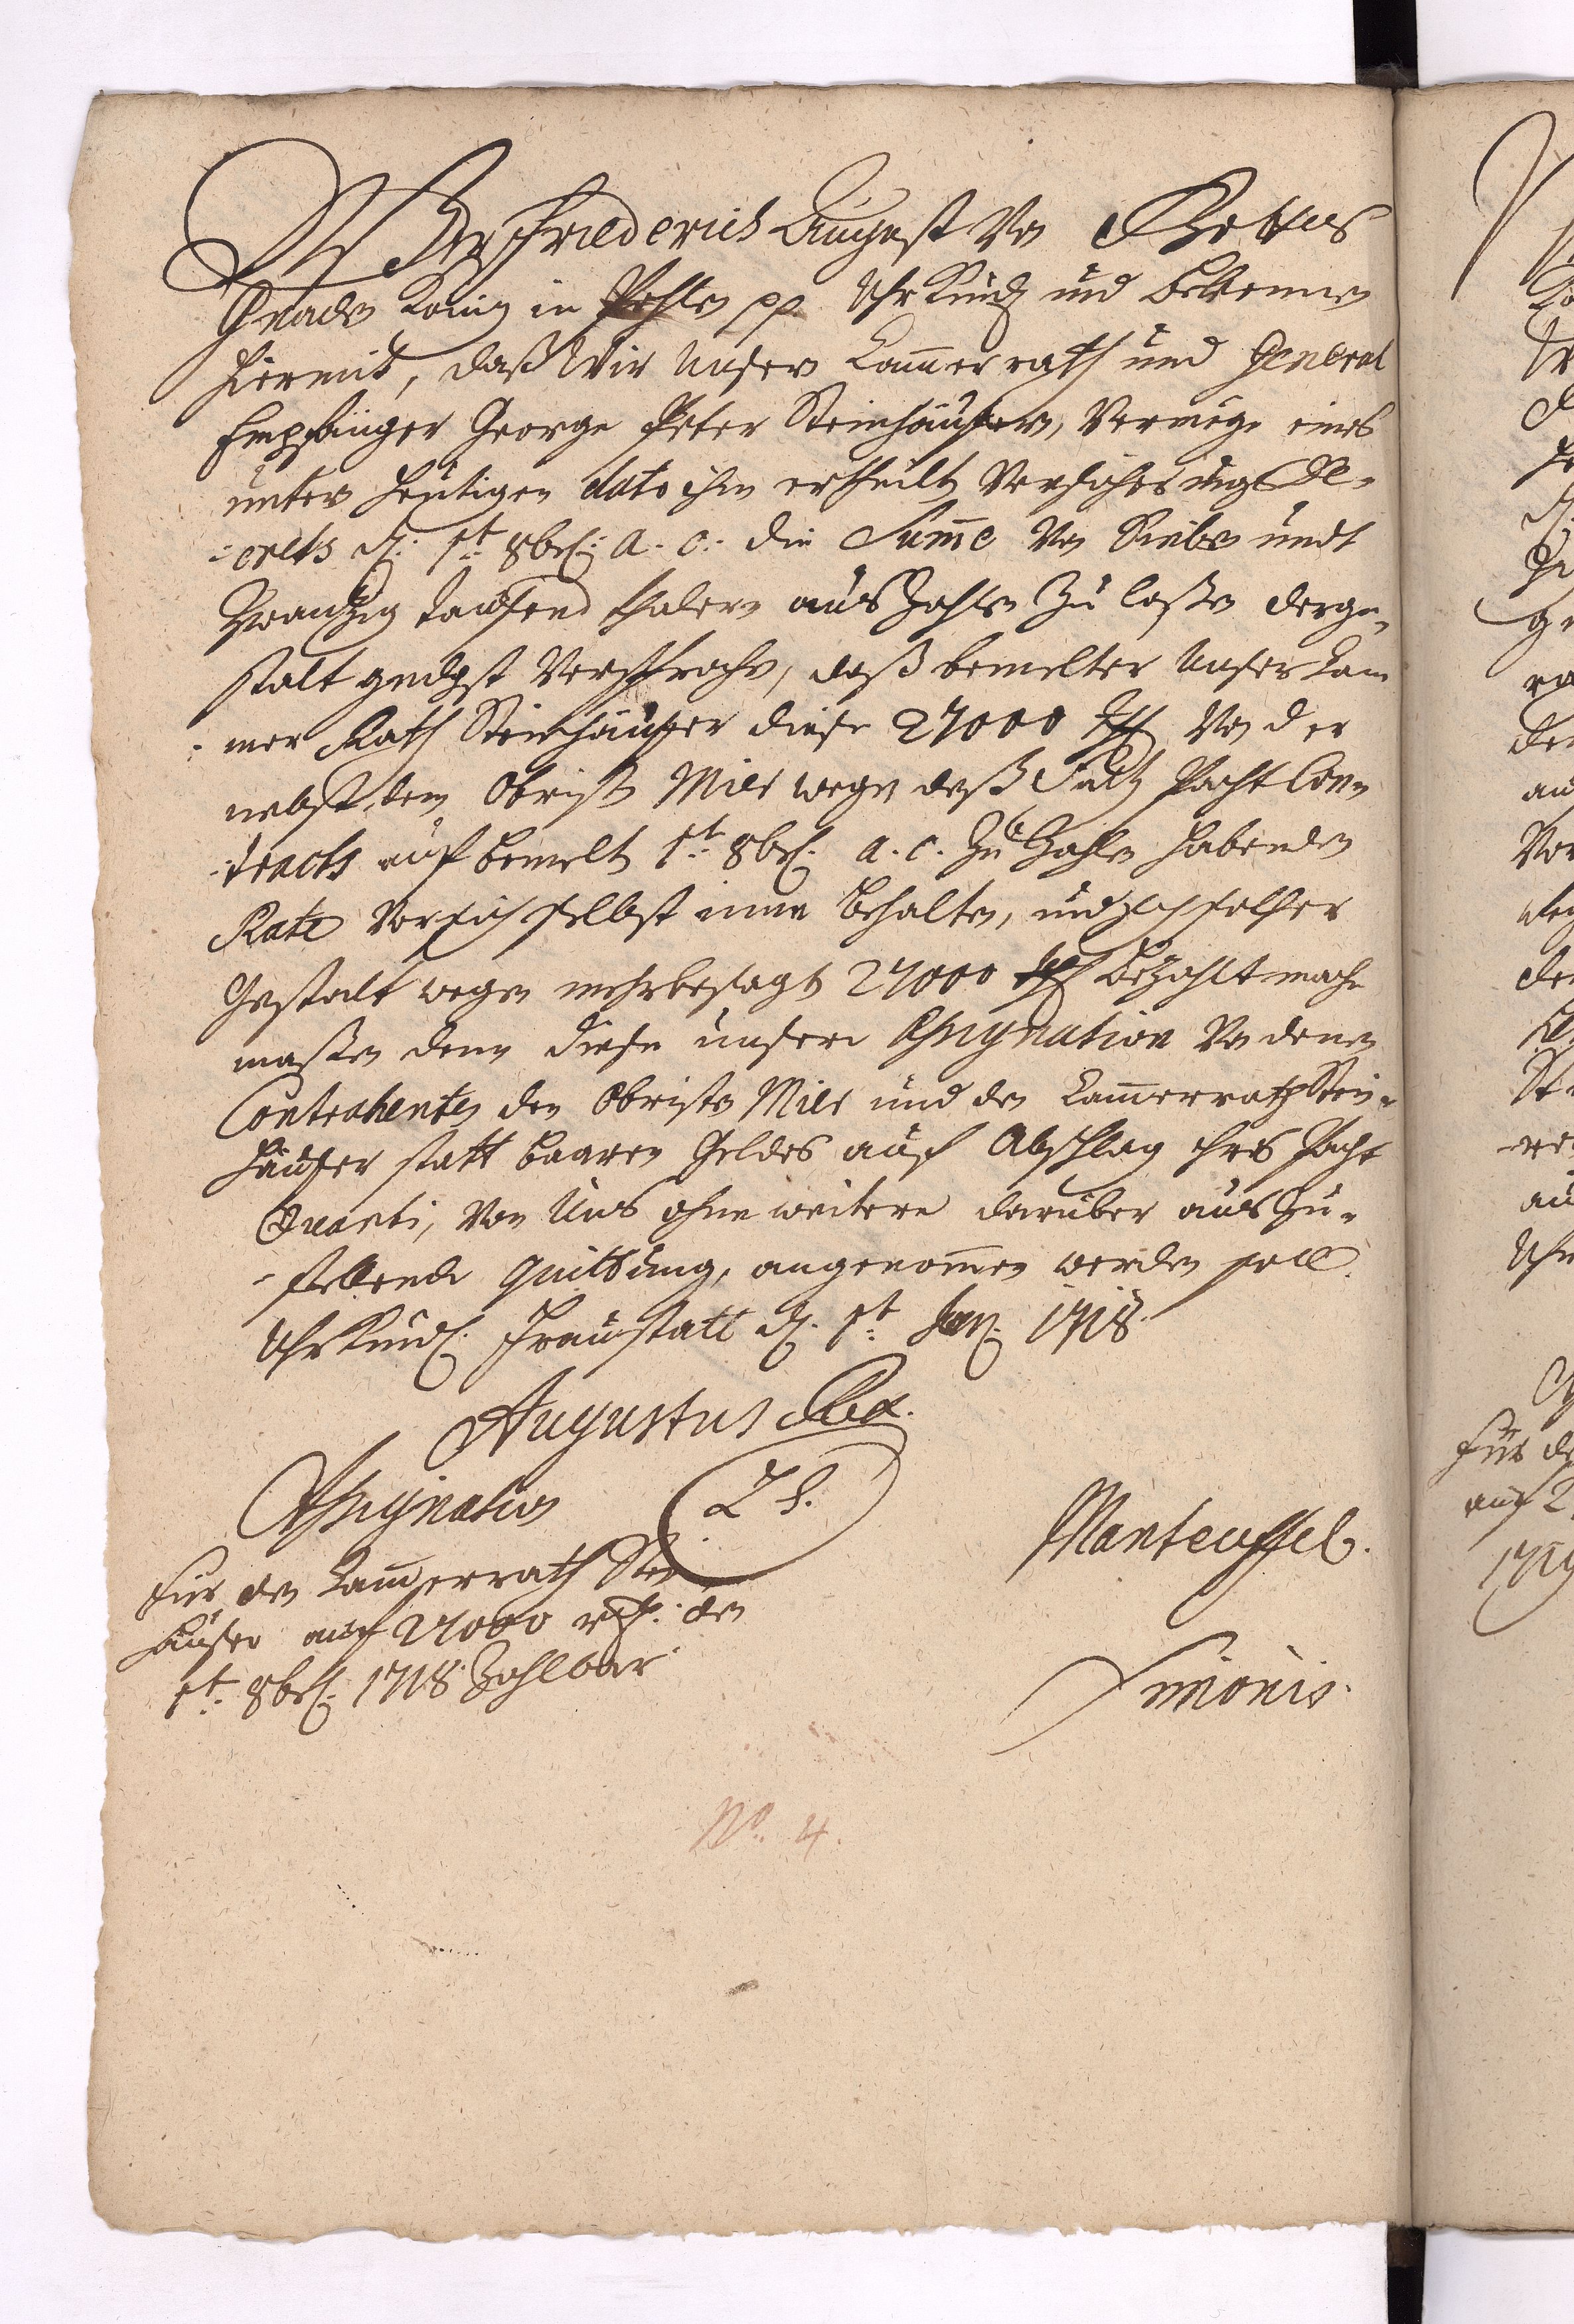 Wir Friederich August von Gottes
Gnaden König in Pohlen pp. Uhrkunden und bekennen
hiermit, daß Wir Unsern Cammerrath und General
Empfänger George Peter Steinhäusern, Vermöge eines
unter heutigen dato ihm ertheilten Versicherungs De-
-crets d. 1t. 8br. a. c. die Summe von Sieben undt
Zwantzig tausend thalern auszahlen zu laßen derge-
stalt gndgst versprochen, daß bemelter Unser Cam
-mer Rath Steinhäuser diese 27000 thl von der
nebst dem Obrist Milr wegen deß Saltz Pacht Con-
-tracts auf bemelten 1t. 8br. a. c. zu zahlen habenden
Rate vor sich selbst inne behalten, und sich solcher
Gestalt wegen mehrbesagten 27000 thl bezahlt mache
maßen denn diese unsere Assignation von denen
Contrahenten den Obristen Milr und den Cammerrath Stein-
häuser statt baaren Geldes auf Abschlag ihres Pacht
Quanti, von Uns ohne weitere darüber auszu-
-stellende Quittung, angenommen werden soll.
Uhrkundl. Fraustatt d. 1t. Jan. 1718.
Augustus Rex.
Assignation
L S.
Manteuffel.
für den Cammerrath Stein
häuser auf 27000 rthl. den
1t. 8br. 1718. Zahlbar
Simonis.
No. 4.